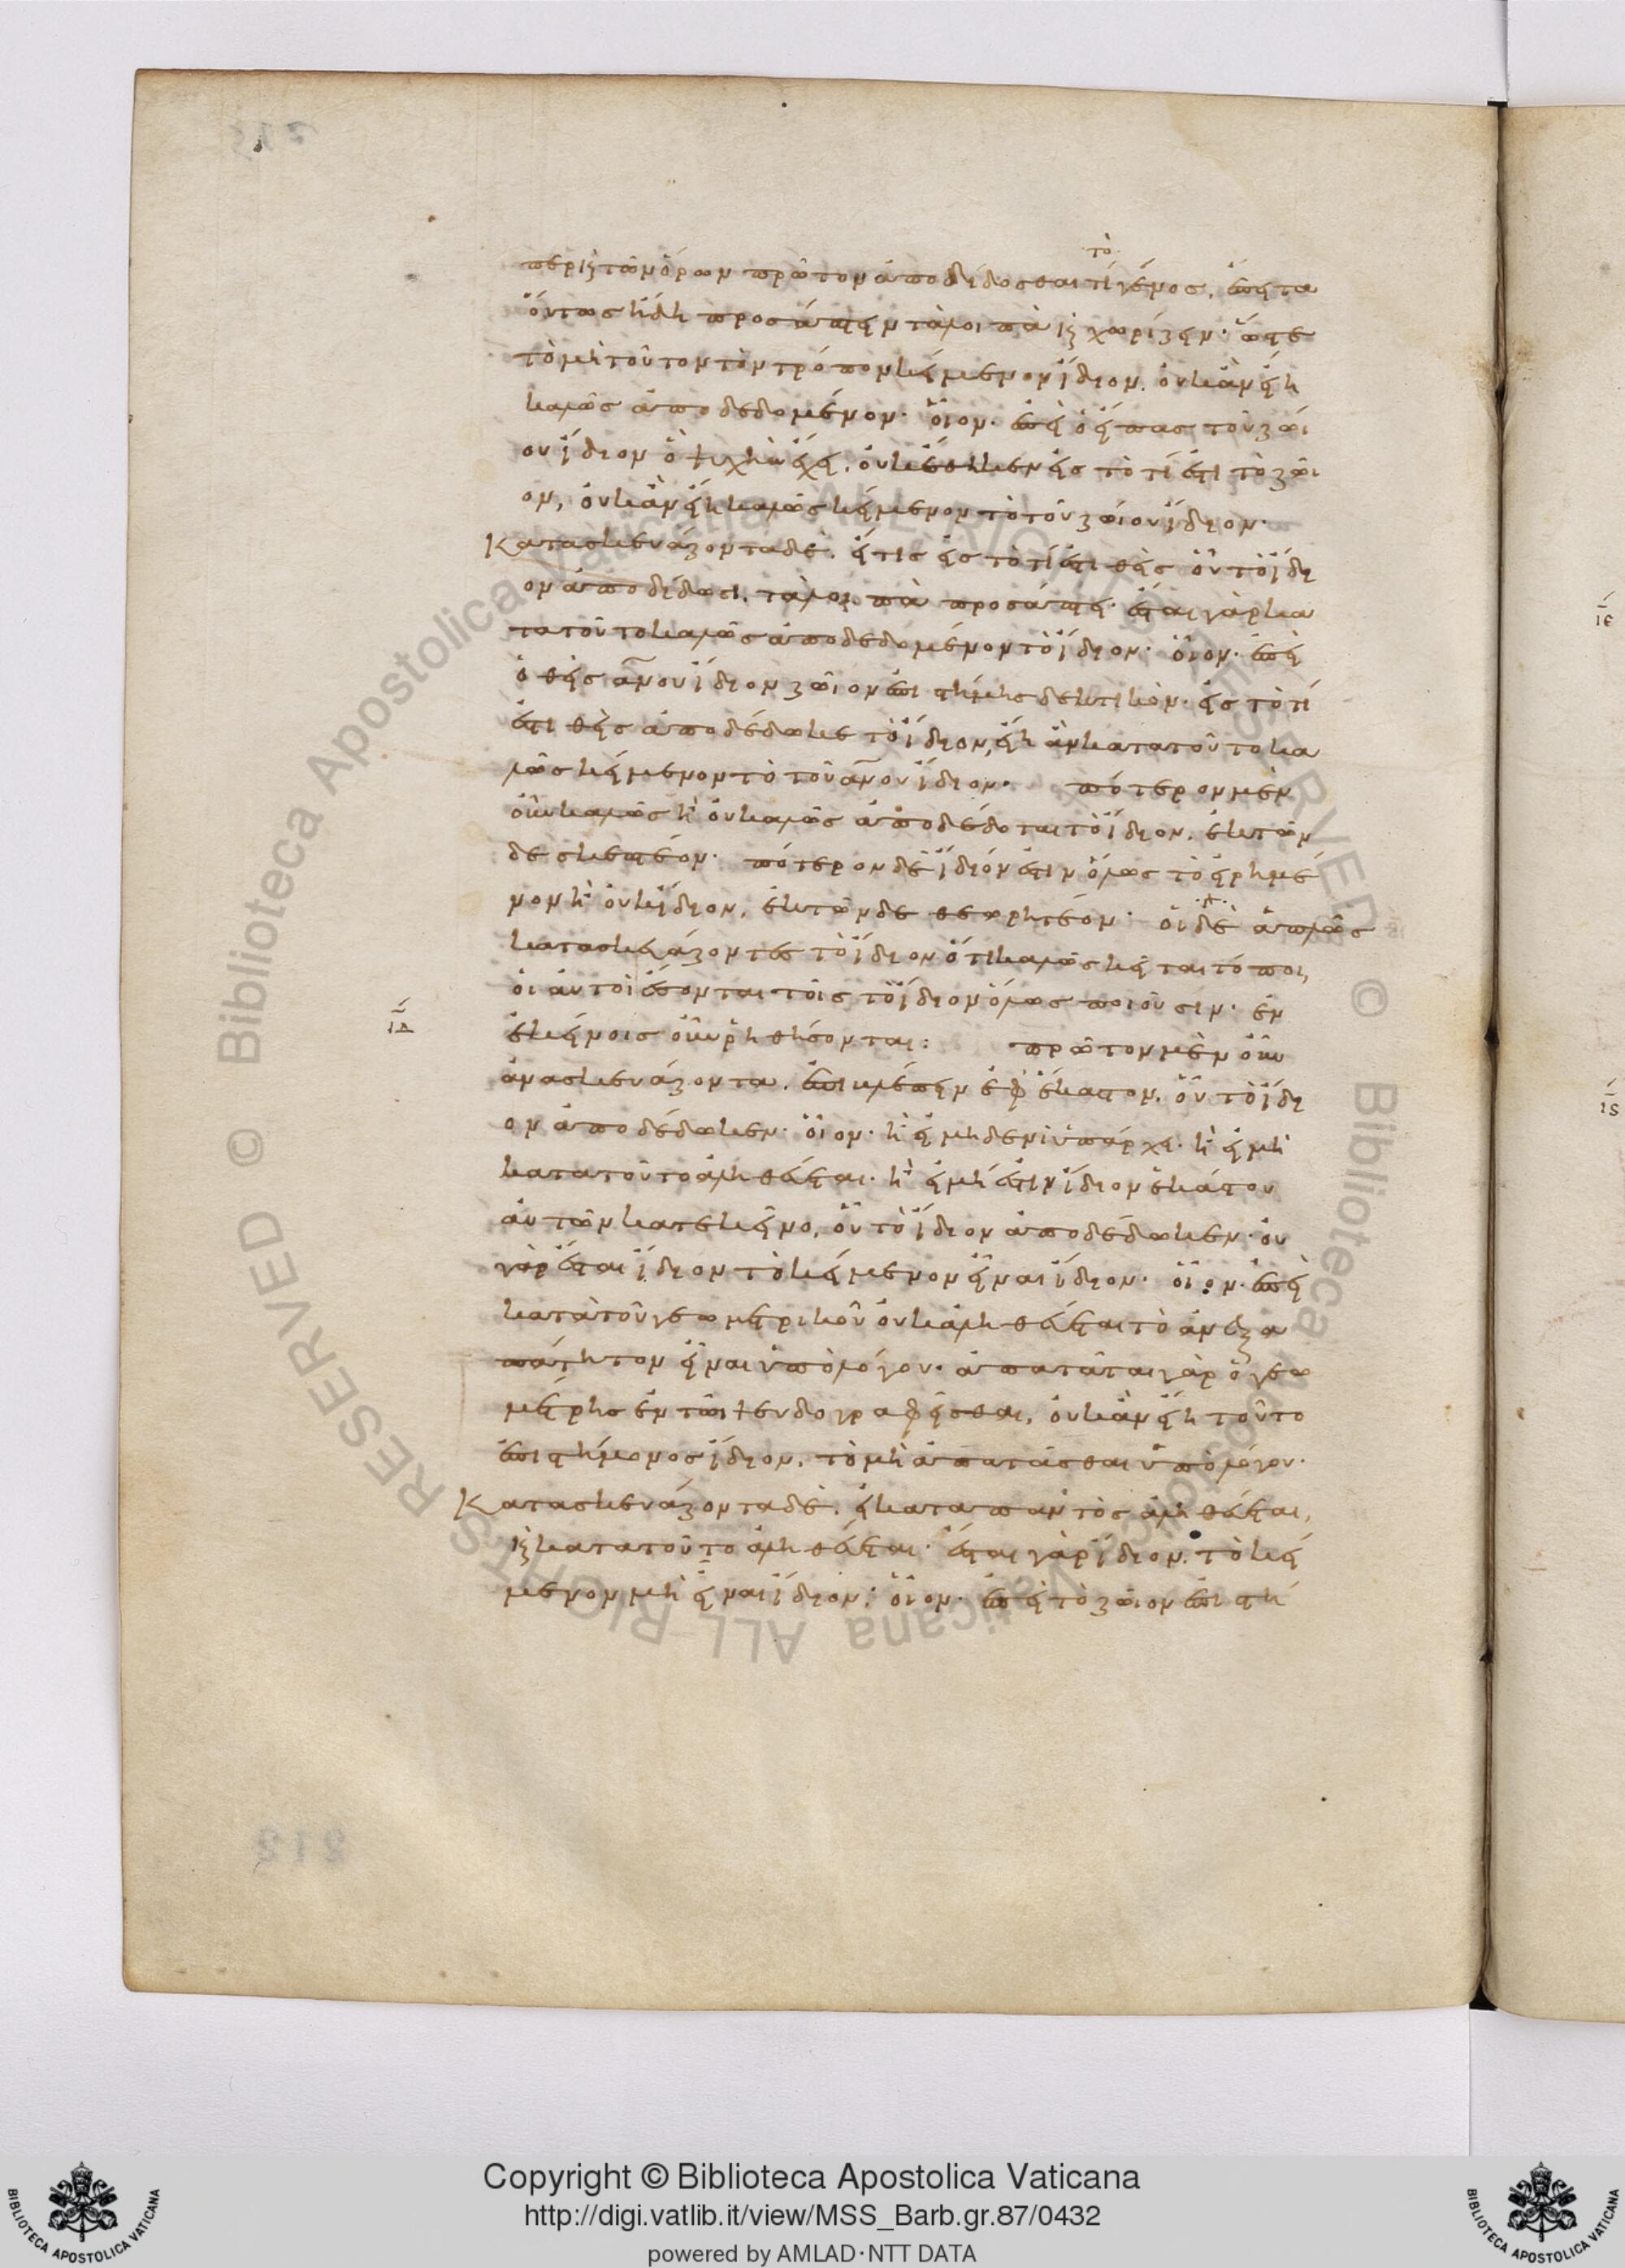 τὸ
περι κ τῶν ὅρων πρῶτον ἀποδίδοσθαι τί γένος. ἔπειτα
οὕτως ἤδη προσάπτειν τὰ λοιπὰ κ χωρίζειν· ὥστε
τὸ μὴ τοῦτον τὸν τρόπον κείμενον ἴδιον. οὐκ ἂν εἴη
καλῶς ἀποδεδομένον· οἷον· ἐπεὶ ὁ εἴπας τοῦ ζώι
ου ἴδιον ὃ ψυχὴν ἔχει. οὐκ ἔθηκεν εἰς τὸ τί ἐστι τὸ ζῶι
ον, οὐκ ἂν εἴη καλῶς κείμενον τὸ τοῦ ζώιου ἴδιον·
Κατασκευάζοντα δὲ. εἴ τις εἰς τὸ τί ἐστι θεὶς οὗ τὸ ἴδι
ον ἀποδίδωσι. τὰ λοιπὰ προσάπτει· ἔσται γὰρ κα
τα τοῦτο καλῶς ἀποδεδομένον τὸ ἴδιον· οἷον· ἐπεὶ
ὁ θεὶς ἀνου ἴδιον ζῶιον ἐπιστήμης δεκτικὸν· εἰς τὸ τί
ἐστι θεὶς ἀποδέδωκε τὸ ἴδιον, εἴη ἂν κατα τοῦτο κα
λῶς κείμενον τὸ τοῦ ἀνου ἴδιον· πότερον μὲν
οὖν καλῶς ἢ οὐ καλῶς ἀποδέδοται τὸ ἴδιον. ἐκ τῶν
δε σκεπτέον· πότερον δὲ ἴδιόν ἐστιν ὅλως τὸ εἰρημέ
νον ἢ οὐκ ἴδιον, ἐκ τῶνδε θεωρητέον· οἱ δὲ ἁπλῶς
κατασκευάζοντες τὸ ἴδιον ὅτι καλῶς κεῖται τόποι,
οἱ αὐτοὶ ἔσονται τοῖς τὸ ἴδιον ὅλως ποιοῦσιν· ἐν
ιδ
ἐκείνοις οὖν ῥηθήσονται: πρῶτον μὲν οὖν
ἀνασκευάζοντα. ἐπιβλέπειν ἐφ ἕκαστον. οὗ τὸ ἴδι
ον ἀποδέδωκεν· οἷον· ἢ εἰ μηδενὶ ὑπάρχει· ἢ εἰ μὴ
κατα τοῦτο ἀληθεύεται· ἢ εἰ μή ἐστιν ἴδιον ἑκάστου
αὐτῶν κατ ἐκεῖνο, οὗ τὸ ἴδιον ἀποδέδωκεν· οὐ
γὰρ ἔσται ἴδιον τὸ κείμενον εἶναι ἴδιον· οἷον· ἐπεὶ
κατὰ τοῦ γεωμετρικοῦ οὐκ ἀληθεύεται τὸ ἀνεξα
πάτητον εἶναι ὑπὸ λόγου· ἀπατᾶται γὰρ ὁ γεω
μέτρης ἐν τῶι ψευδογραφεῖσθαι, οὐκ ἂν εἴη τοῦτο
ἐπιστήμονος ἴδιον. τὸ μὴ ἀπατᾶσθαι ὑπὸ λόγου·
Κατασκευάζοντα δὲ. εἰ κατα παντὸς ἀληθεύεται,
κ κατα τοῦτο ἀληθεύεται· ἔσται γὰρ ἴδιον. τὸ κεί
μενον μὴ εἶναι ἴδιον· οἷον· ἐπεὶ τὸ ζῶιον ἐπιστή
ιε
ιϛ
© Biblioteca Apostolica Vaticana ALL RIGHTS RESERVED
Copyright © Biblioteca Apostolica Vaticana
http://digi.vatlib.it/view/MSS_Barb.gr.87/0432
powered by AMLAD·NTT DATA
BIBLIOTECA APOSTOLICA VATICANA
BIBLIOTECA APOSTOLICA VATICANA